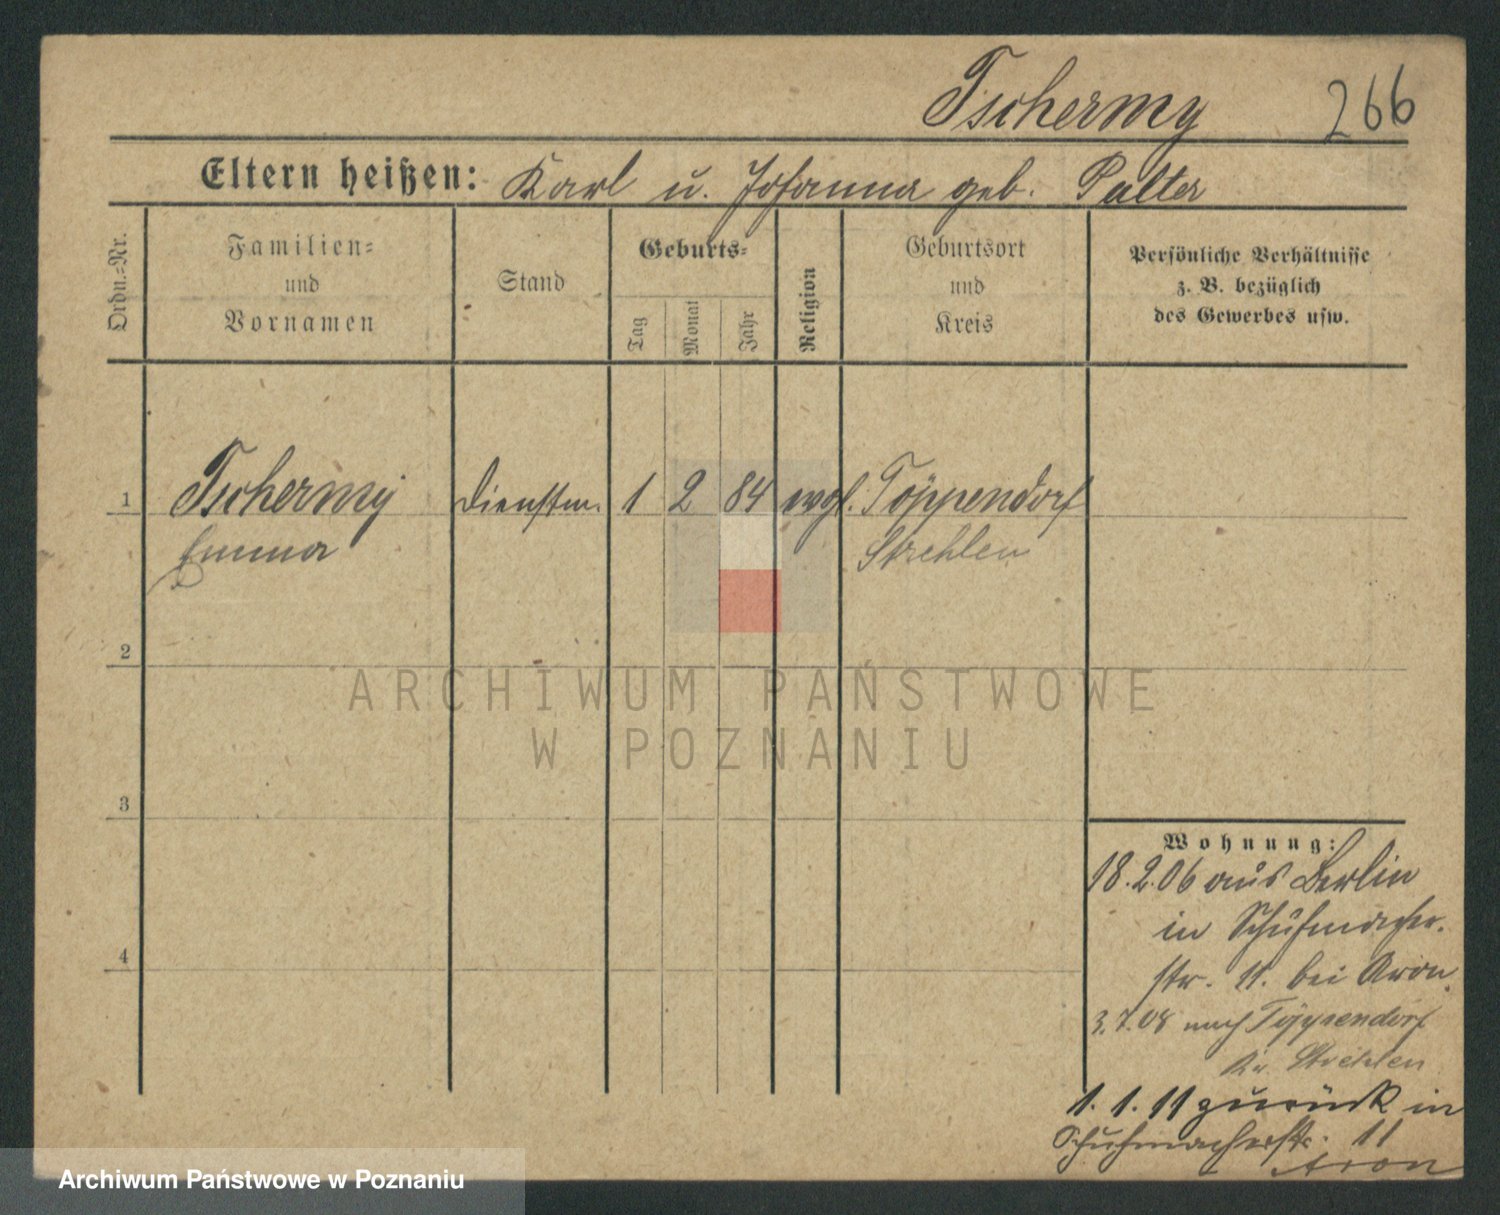 Tschermy 266
Eltern heißen: Karl u. Johanna geb. Palter
Ordn.-Nr.
Familien-
und
Vornamen
Stand
Geburts-
Tag
Monat
Jahr
Religion
Geburtsort
und
Kreis
Persönliche Verhältnisse
z. B. bezüglich
des Gewerbes usw.
1 Tschermy Dienstm. 1 2 84 evgl. Töppendorf
Emma Strehlen
2
ARCHIWUM PAŃSTWOWE
W POZNANIU
3
4
Wohnung:
18.2.06 aus Berlin
in Schuhmacher-
str. 11. bei Aron.
3.7.08 nach Töppendorf
Kr. Strehlen
1. 1. 11 zurück in
Schuhmacherstr. 11
Aron
Archiwum Państwowe w Poznaniu